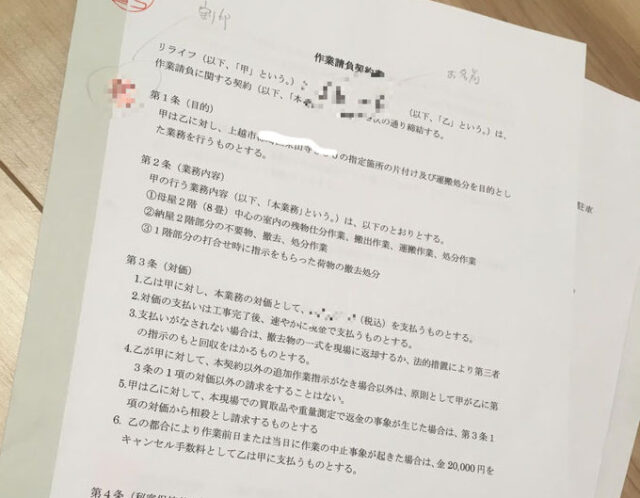 割印
お名前
作業請負契約書
リライフ（以下、「甲」という。）と
（以下、「乙」という。）は、
作業請負に関する契約（以下、「本
次の通り締結する。
第１条（目的）
甲は乙に対し、上越市
の指定箇所の片付け及び運搬処分を目的とし
た業務を行うものとする。
第２条（業務内容）
甲の行う業務内容（以下、「本業務」という。）は、以下のとおりとする。
①母屋２階（8 畳）中心の室内の残物仕分作業、搬出作業、運搬作業、処分作業
②納屋２階部分の不要物、撤去、処分作業
③１階部分の打合せ時に指示をもらった荷物の撤去処分
第３条（対価）
1.乙は甲に対し、本業務の対価として、
（税込）を支払うものとする。
2.対価の支払いは工事完了後、速やかに現金で支払うものとする。
3.支払いがなされない場合は、撤去物の一式を現場に返却するか、法的措置により第三者
の指示のもと回収をはかるものとする。
4.乙が甲に対して、本契約以外の追加作業指示がなき場合以外は、原則として甲が乙に第
３条の１項の対価以外の請求をすることはない。
5.甲は乙に対して、本現場での買取品や重量測定で返金の事象が生じた場合は、第３条１
項の対価から相殺とし請求するものとする
6. 乙の都合により作業前日または当日に作業の中止事象が起きた場合は、金 20,000 円を
キャンセル手数料として乙は甲に支払うものとする。
第４条
駐車